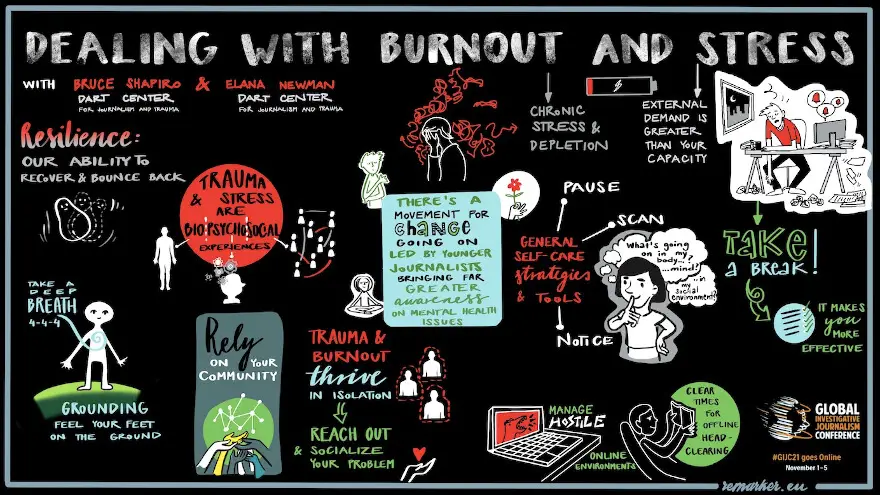 DEALING WITH BURNOUT AND STRESS
WITH BRUCE SHAPIRO & ELANA NEWMAN
DART CENTER
FOR JOURNALISM AND TRAUMA
DART CENTER
FOR JOURNALISM AND TRAUMA
Resilience:
OUR ABILITY TO
RECOVER & BOUNCE BACK
TRAUMA
& STRESS
ARE
BIOPSYCHOSOCIAL
EXPERIENCES
TAKE A
DEEP
BREATH
4-4-4
GROUNDING
FEEL YOUR FEET
ON THE GROUND
Rely
ON YOUR
COMMUNITY
TRAUMA &
BURNOUT
thrive
IN ISOLATION
REACH OUT
& SOCIALIZE
YOUR PROBLEM
THERE'S A
MOVEMENT FOR
change
GOING ON
LED BY YOUNGER
JOURNALISTS
BRINGING FAR
GREATER
awareness
ON MENTAL HEALTH
ISSUES
CHRONIC
STRESS &
DEPLETION
EXTERNAL
DEMAND IS
GREATER
THAN YOUR
CAPACITY
GENERAL
SELF-CARE
strategies
& TOOLS
PAUSE
SCAN
NOTICE
What's going
on in my
body...
...mind?
...in my
social
environment?
TAKE
A BREAK!
IT MAKES
you
MORE
EFFECTIVE
MANAGE
HOSTILE
ONLINE
ENVIRONMENTS
CLEAR
TIMES
FOR
OFFLINE
HEAD-
CLEARING
GLOBAL
INVESTIGATIVE
JOURNALISM
CONFERENCE
#GIJC21 goes Online
November 1-5
remarker.eu